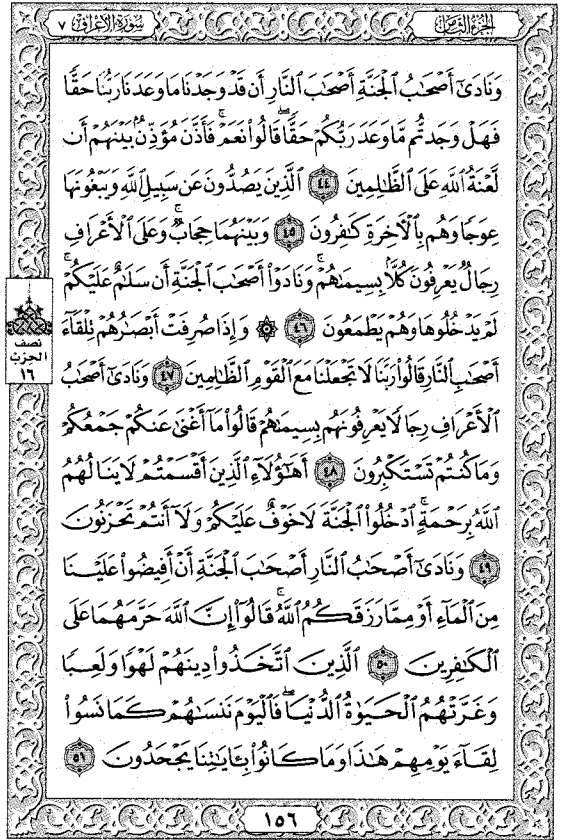 سورة الأعراف ٧
الجزء الثامن
وَنَادَىٰٓ أَصْحَٰبُ ٱلْجَنَّةِ أَصْحَٰبَ ٱلنَّارِ أَن قَدْ وَجَدْنَا مَا وَعَدَنَا رَبُّنَا حَقًّا
فَهَلْ وَجَدتُّم مَّا وَعَدَ رَبُّكُمْ حَقًّا ۖ قَالُوا۟ نَعَمْ ۚ فَأَذَّنَ مُؤَذِّنٌۢ بَيْنَهُمْ أَن
لَّعْنَةُ ٱللَّهِ عَلَى ٱلظَّٰلِمِينَ ٤٤ ٱلَّذِينَ يَصُدُّونَ عَن سَبِيلِ ٱللَّهِ وَيَبْغُونَهَا
عِوَجًا وَهُم بِٱلْءَاخِرَةِ كَٰفِرُونَ ٤٥ وَبَيْنَهُمَا حِجَابٌ ۚ وَعَلَى ٱلْأَعْرَافِ
رِجَالٌ يَعْرِفُونَ كُلًّۢا بِسِيمَىٰهُمْ ۚ وَنَادَوْا۟ أَصْحَٰبَ ٱلْجَنَّةِ أَن سَلَٰمٌ عَلَيْكُمْ ۚ
لَمْ يَدْخُلُوهَا وَهُمْ يَطْمَعُونَ ٤٦ ۞ وَإِذَا صُرِفَتْ أَبْصَٰرُهُمْ تِلْقَآءَ
أَصْحَٰبِ ٱلنَّارِ قَالُوا۟ رَبَّنَا لَا تَجْعَلْنَا مَعَ ٱلْقَوْمِ ٱلظَّٰلِمِينَ ٤٧ وَنَادَىٰٓ أَصْحَٰبُ
ٱلْأَعْرَافِ رِجَالًا يَعْرِفُونَهُم بِسِيمَىٰهُمْ قَالُوا۟ مَآ أَغْنَىٰ عَنكُمْ جَمْعُكُمْ
وَمَا كُنتُمْ تَسْتَكْبِرُونَ ٤٨ أَهَٰٓؤُلَآءِ ٱلَّذِينَ أَقْسَمْتُمْ لَا يَنَالُهُمُ
ٱللَّهُ بِرَحْمَةٍ ۚ ٱدْخُلُوا۟ ٱلْجَنَّةَ لَا خَوْفٌ عَلَيْكُمْ وَلَآ أَنتُمْ تَحْزَنُونَ
٤٩ وَنَادَىٰٓ أَصْحَٰبُ ٱلنَّارِ أَصْحَٰبَ ٱلْجَنَّةِ أَنْ أَفِيضُوا۟ عَلَيْنَا
مِنَ ٱلْمَآءِ أَوْ مِمَّا رَزَقَكُمُ ٱللَّهُ ۚ قَالُوٓا۟ إِنَّ ٱللَّهَ حَرَّمَهُمَا عَلَى
ٱلْكَٰفِرِينَ ٥٠ ٱلَّذِينَ ٱتَّخَذُوا۟ دِينَهُمْ لَهْوًا وَلَعِبًا
وَغَرَّتْهُمُ ٱلْحَيَوٰةُ ٱلدُّنْيَا ۚ فَٱلْيَوْمَ نَنسَىٰهُمْ كَمَا نَسُوا۟
لِقَآءَ يَوْمِهِمْ هَٰذَا وَمَا كَانُوا۟ بِـَٔايَٰتِنَا يَجْحَدُونَ ٥١
نصف
الحزب
١٦
١٥٦